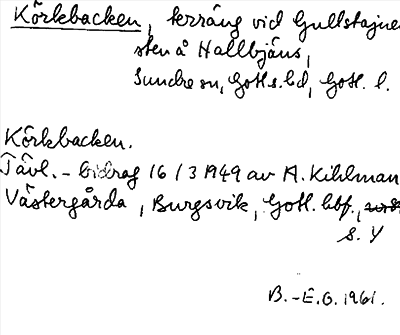 Körkbacken, terräng vid Gullstajns
sten å Hallbjäns,
Sundre sn, Gotl. s. hd, Gotl. l.
Körkbacken.
Tävl. - bidrag 16/3 1949 av A. Kihlman
Västergårda, Burgsvik, Gotl. hbf.,
s. 4
B. - E.G. 1961.